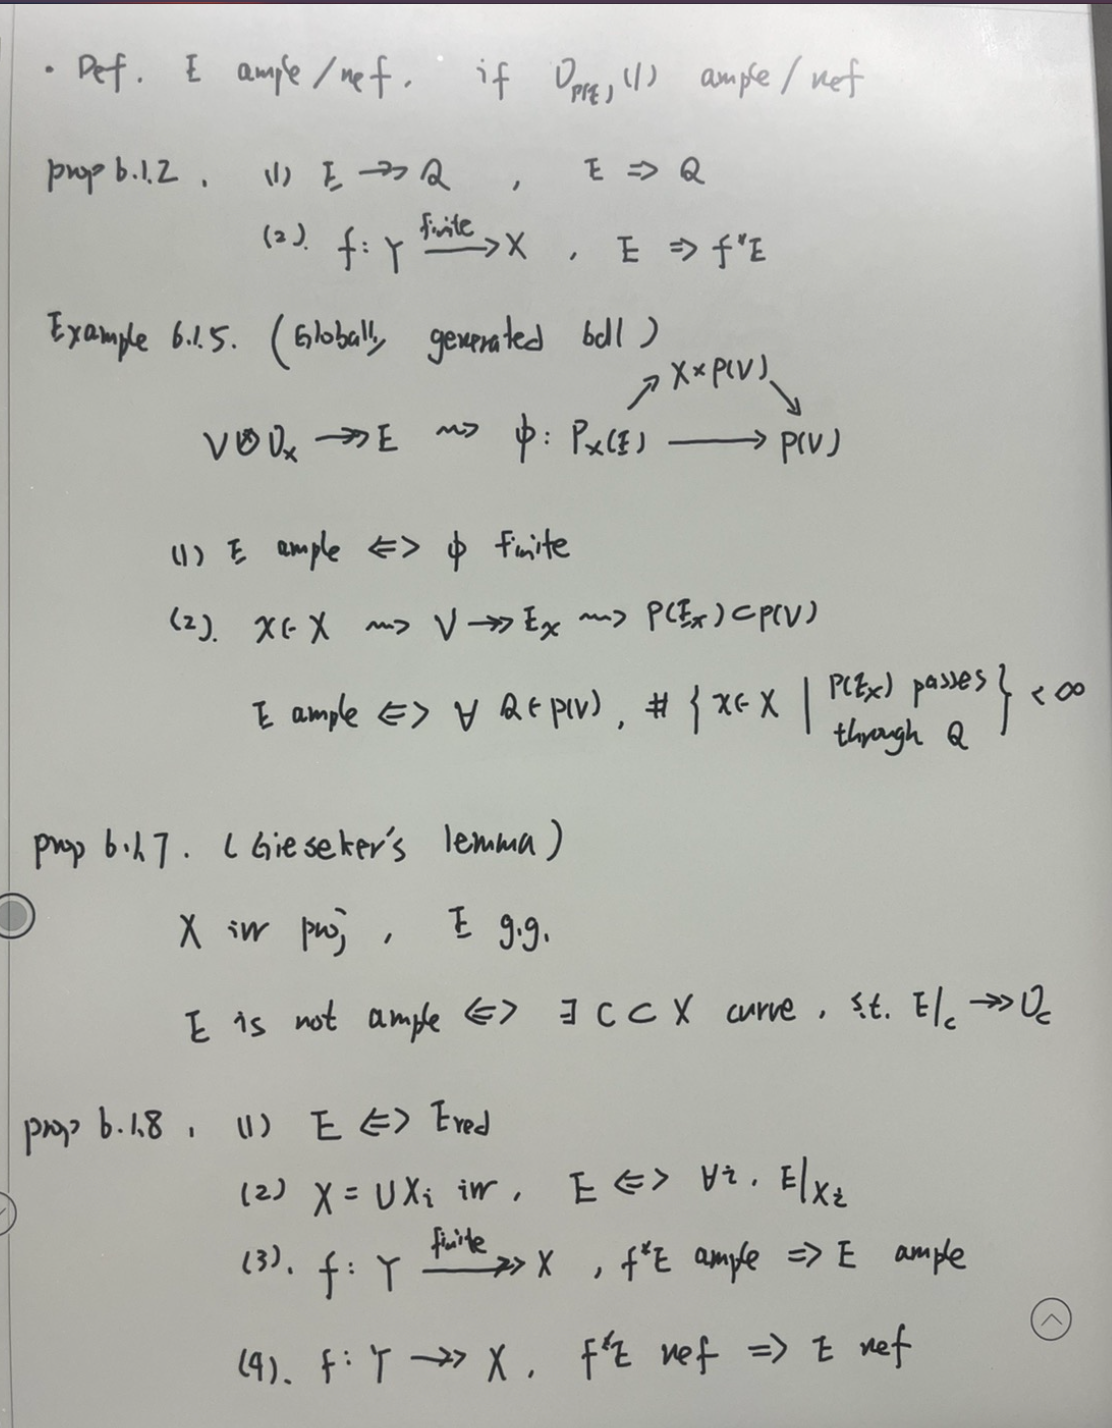 · Def. E ample/nef. if O_{P(E)}(1) ample/nef
prop 6.1.2. (1) E ↠ Q , E ⇒ Q
(2). f: Y \xrightarrow{finite} X , E ⇒ f*E
Example 6.1.5. (Globally generated bdl)
↗ X×P(V) ↘
V⊗O_x ↠ E ⇝ φ: P_X(E) ⟶ P(V)
(1) E ample ⇔ φ finite
(2). x∈X ⇝ V ↠ E_x ⇝ P(E_x) ⊂ P(V)
E ample ⇔ ∀ Q∈P(V), # { x∈X | P(E_x) passes through Q } < ∞
prop 6.1.7. (Gieseker's lemma)
X irr proj , E g.g.
E is not ample ⇔ ∃ C ⊂ X curve, s.t. E|_C ↠ O_C
prop 6.1.8. (1) E ⇔ E_red
(2) X = ∪X_i irr, E ⇔ ∀i. E|_{X_i}
(3). f: Y \xrightarrow{finite}↠ X , f*E ample ⇒ E ample
(4). f: Y ↠ X, f*E nef ⇒ E nef